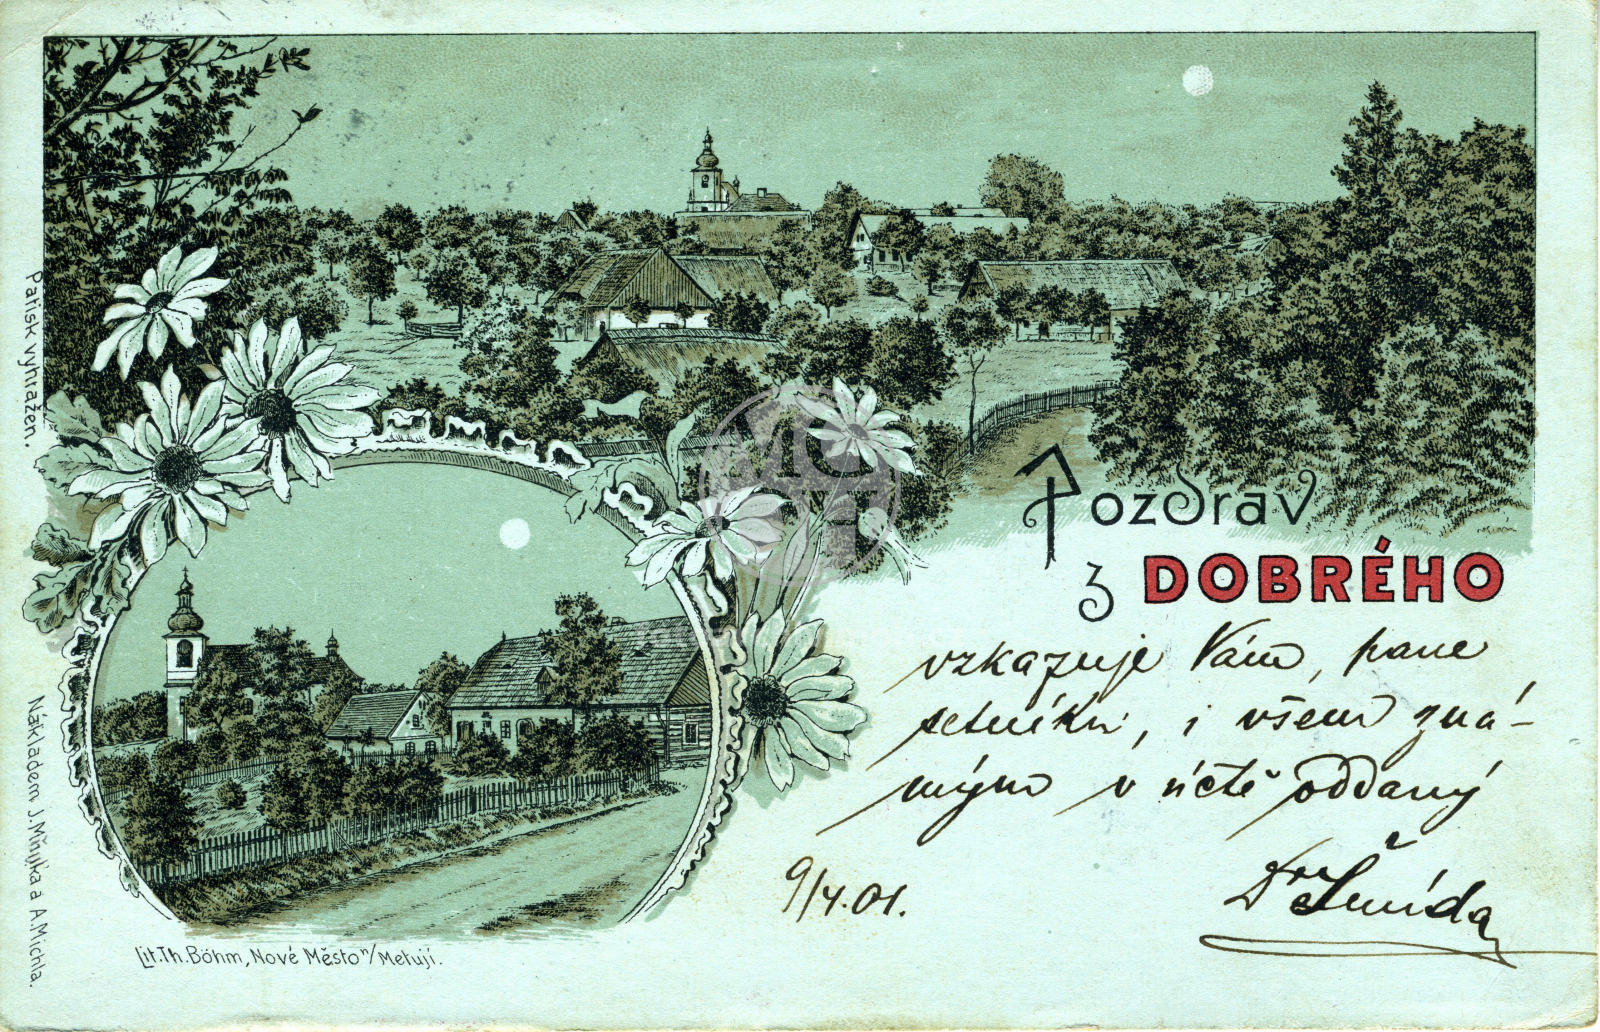 Pozdrav
z DOBRÉHO
vzkazuje Vám, pane
setníku, i všem zná-
mým v úctě oddaný
Dr Šmída
9/4.01.
Patisk vyhražen.
Nákladem J. Mňuka a A. Michla.
Lit. Th. Böhm, Nové Město n/Metují.